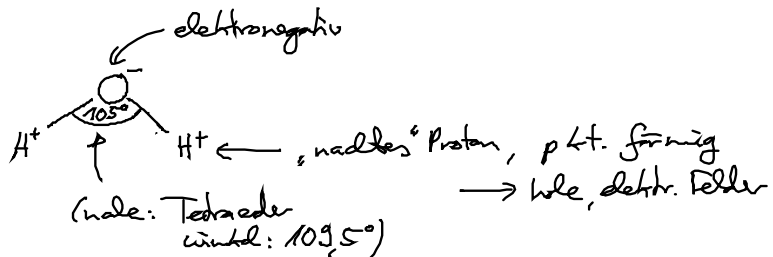 elektronegativ
O⁻
105°
H⁺ H⁺ ← „nacktes" Proton, pkt. förmig
(nahe: Tetraeder → hohe elektr. Felder
winkel: 109,5°)